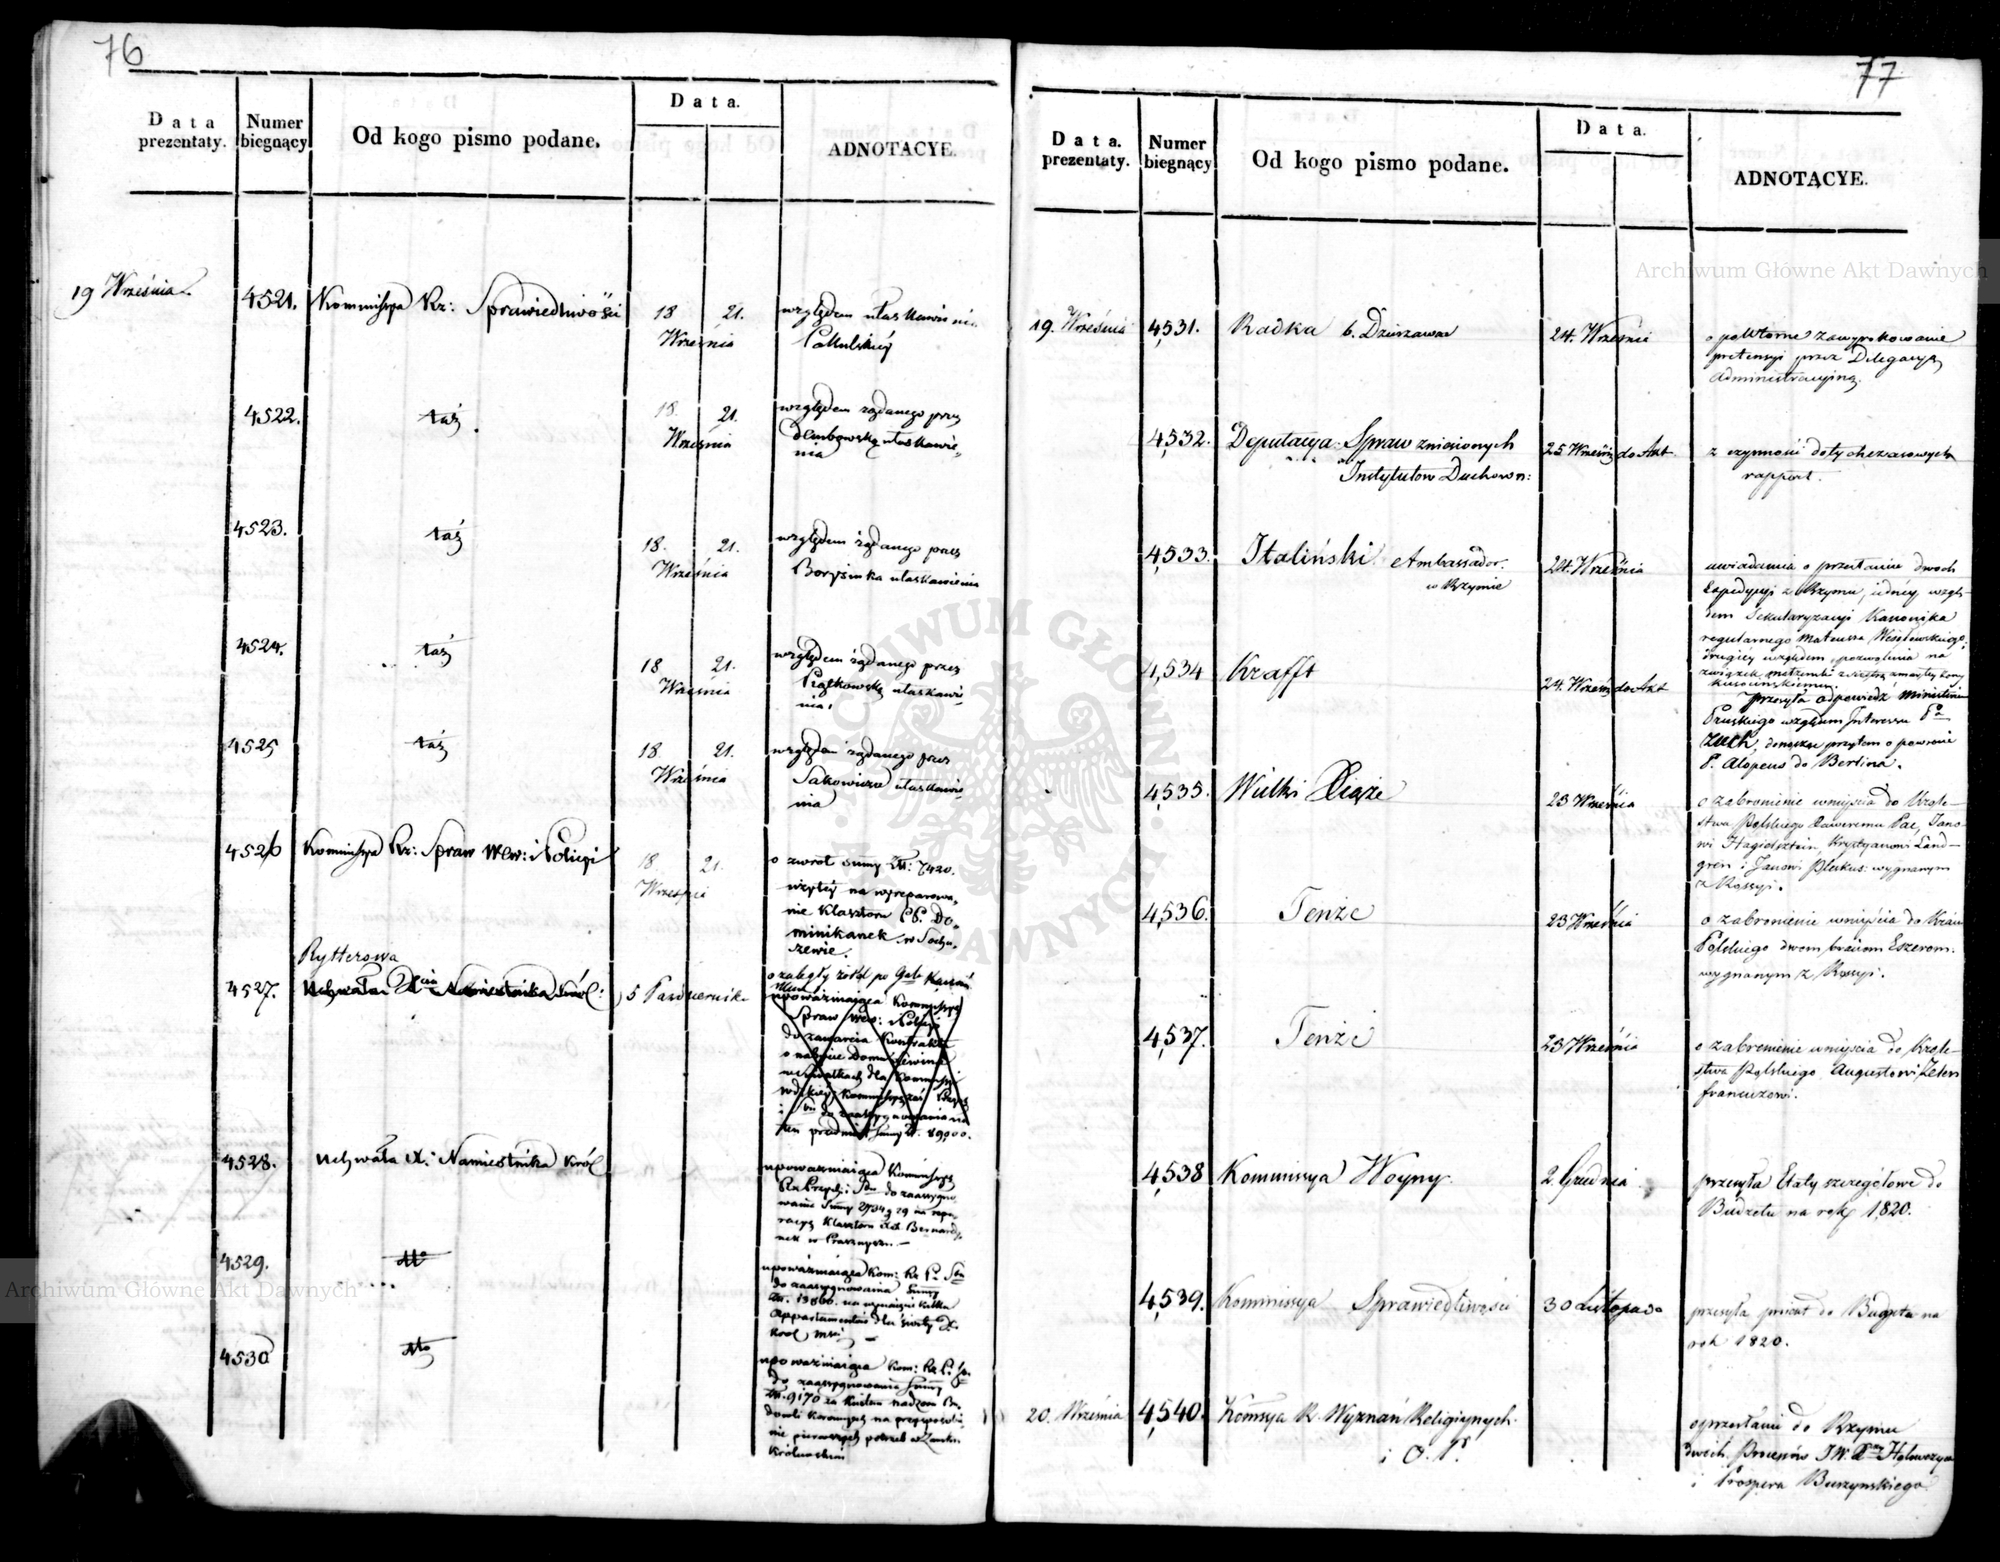 76
Data prezentaty.
Numer biegnący
Od kogo pismo podane.
Data.
ADNOTACYE.
19 Września
4521.
Kommissya Rz: Sprawiedliwości
18 21.
Września
względem ułaskawienia
4522.
taż.
18. 21.
Września
względem żądanego przez
Dembowską ułaskawie-
nia
4523.
taż
18. 21.
Września
względem żądanego przez
ułaskawienia
4524.
taż
18 21.
Września
względem żądanego przez
Piątkowską ułaskawie
nia.
4525
taż
18 21.
Września
względem żądanego przez
Sakowicza ułaskawie-
nia
4526
Kommissya Rz: Spraw Wew: i Policyi
18 21.
Września
o zwrot Summy Zł: 7420.
użytey na wyreparowa-
nie Klasztoru PP. Do-
minikanek w Socha-
czewie.
Rytterowa
4527.
Uchwała Xcia Namiestnika Król:
5 Październik
o zaległy żołd po
upoważniaiąca Kommissyę
Spraw Wew: i Policyi
do zawarcia Kontraktu
o Domu
dla Kommissyi
Summy Zł. 89000.
4528.
Uchwała X. Namiestnika Król
upoważniaiąca Kommissyę
Rz Przych: i Sbu do zaassygno
wania Summy na repe-
racyę Klasztoru Bernardy-
nek w Prasnyszu. —
4529.
dto
upoważniaiąca Kom: Rz P. Sbu
do zaassygnowania Summy
na
Appartamentów dla Świty X.
Król Mci —
4530
dto
upoważniaiąca Kom: Rz P. Sbu.
do zaassygnowania Summy
Zł. 9170 nadzoru Bu-
dowli Koronnych na przysposobie-
nie pierwszych potrzeb w Zamku
Królewskim
77
Data. prezentaty.
Numer biegnący
Od kogo pismo podane.
Data.
ADNOTACYE.
19. Września
4531.
Radka b. Dzierzawca
24. Września
o powtórne zawyrokowanie
pretensyi przez Delegacyę
Administracyiną.
4532.
Deputacya Spraw zniesionych
Instytutów Duchown:
25 Wrześn do Akt
z czynności dotychczasowych
rapport.
4533.
Italiński Ambassador.
w Rzymie
24. Września
uwiadamia o przesłaniu dwoch
Expedycyi z Rzymu, iedney wzglę-
dem Sekularyzacyi Kanonika
regularnego Mateusza Wesołowskiego,
drugiey względem pozwolenia na
związek małżeński z siostrą zmarłey żony
4534
Krafft
24. Wrześ do Akt
Przesyła odpowiedź Ministerium
Pruskiego względem Interessu Pa
Zuch, donosząc przytem o powrocie
P. Alopeus do Berlina.
4535.
Wielki Xiąże
23 Września
o zabronienie wniyscia do Króle-
stwa Polskiego Xaweremu Pac, Jano-
wi Hagielsztein, Krystyanowi Land-
gren i Janowi Pleskus: wygnanym
z Rossyi.
4536.
Tenże
23 Września
o zabronienie wniyścia do Króle
Polskiego dwom braciom Eszerom.
wygnanym z Rossyi.
4537.
Tenże
23 Września
o zabronienie wniyscia do Króle-
stwa Polskiego Augustowi
francuzowi.
4538
Kommissya Woyny.
2. Grudnia
przesyła Etaty szczegółowe do
Budżetu na rok 1820.
4539.
Kommissya Sprawiedliwości
30 Listopada
przesyła proiekt do Budżetu na
rok 1820.
20. Września
4540.
Kommsya R. Wyznań Religiynych.
i O. P.
o przesłanie do Rzymu
dwóch Processów JW. Xdza Hołowczyca
i Prospera Burzynskiego
Archiwum Główne Akt Dawnych
Archiwum Główne Akt Dawnych
ARCHIWUM GŁÓWNE AKT DAWNYCH